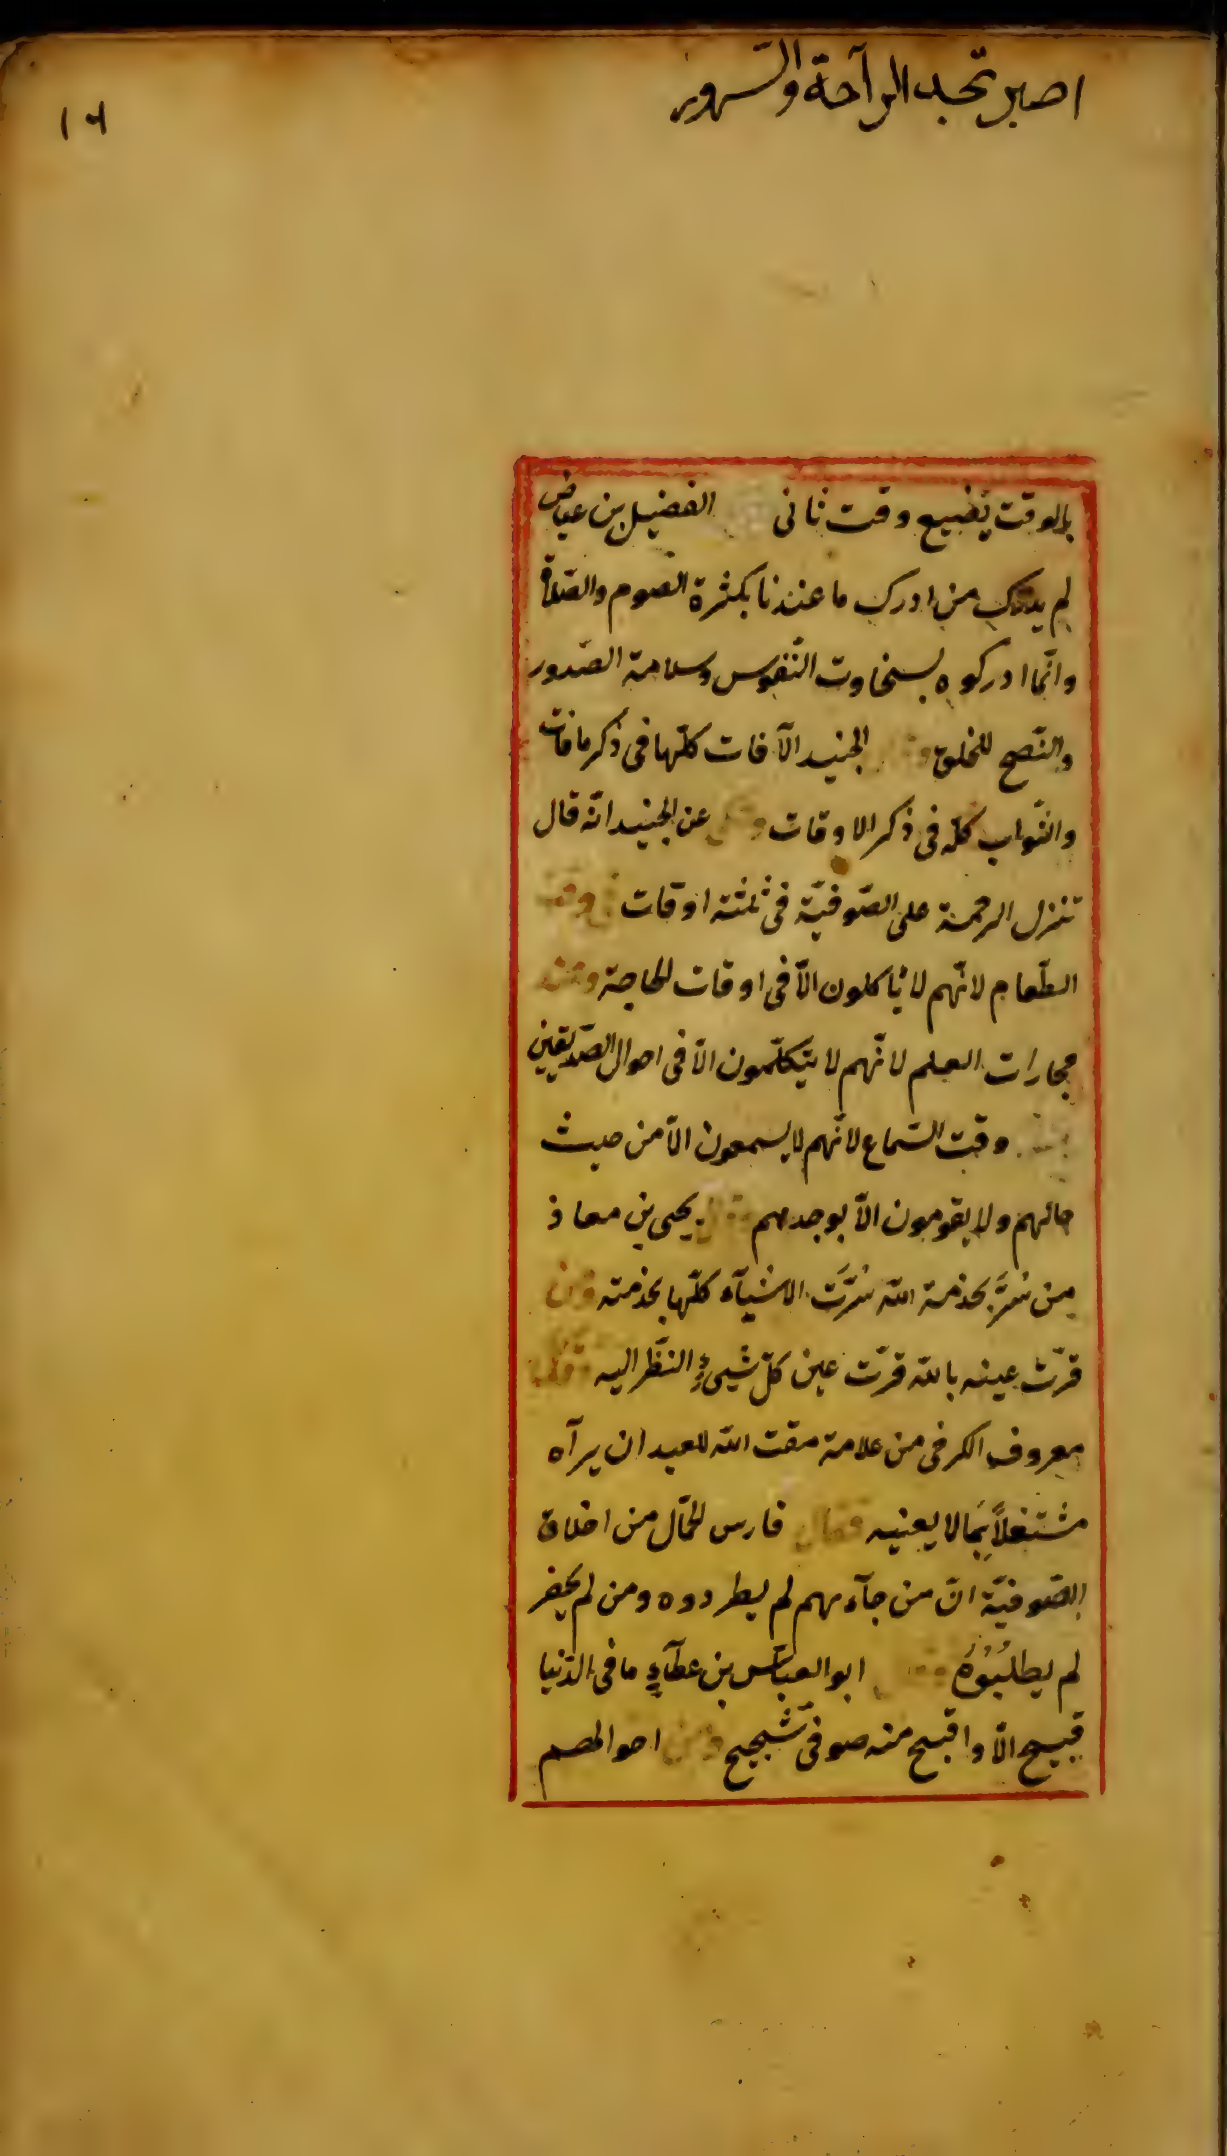 اصبر تجد الرآحة والسّرور
١٦
بالوقت يُضيع وقت ثانى الفضيل بن عياض
لم يدرك من ادرك ما عندنا بكثرة الصوم والصّلاة
وانّما ادركوه بسخاوت النّفوس وسلامة الصّدور
والنّصح للخلق الجنيد الآفات كلّها فى ذكر مافات
والثّواب كلّه فى ذكر الاوقات وحكى عن الجنيد انّه قال
تنزل الرحمة على الصّوفيّة فى ثلثة اوقات فى وقت
الطّعام لانّهم لا يأكلون الّا فى اوقات الحاجة وعند
مجارات العلم لانّهم لا يتكلّمون الّا فى احوال الصّدّيقين
وقت السّماع لانّهم لا يسمعون الّا من حيث
حالهم ولا يقومون الّا بوجدهم وقال يحيى بن معاذ
من سُرَّ بخدمة اللّه سُرَّت الاشيآء كلّها بخدمته ومن
قرّت عينه باللّه قرّت عين كلّ شيىءٍ النّظر اليه وقال
معروف الكرخى من علامة مقت اللّه للعبد ان يرآه
مشتغلاً بِمَا لا يعنيه فقال فارس الحمّال من اخلاق
الصّوفيّة انّ من جآءهم لم يطردوه ومن لم يحضر
لم يطلبُوُهُ ابو العبّاس بن عطآءٍ ما فى الدّنيا
قبيح الّا واقبح منه صوفىّ شّحيح ومن احوالهم